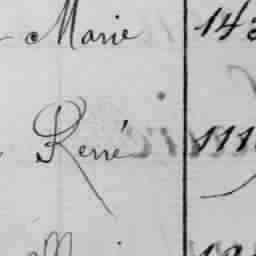 Marie 14
René 111